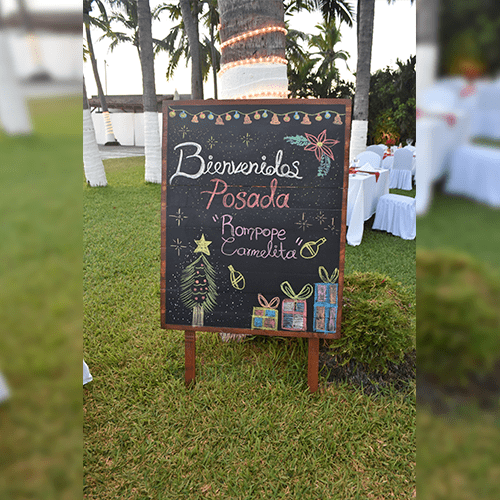 Bienvenidos
Posada
"Rompope
Carmelita"